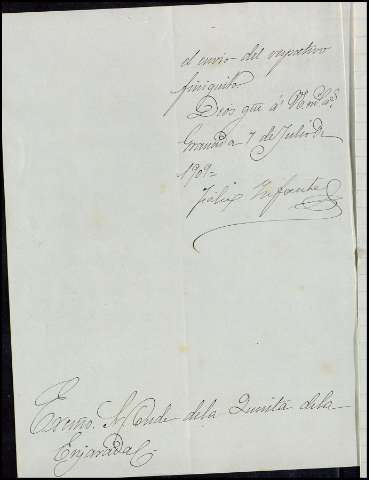 el envio del respectivo
finiquito
Dios gue á V. m.s a.s
Granada 7 de Julio de
1909=
Felix Infante
Excmo. Sr Conde de la Quinta de la
Enjarada.